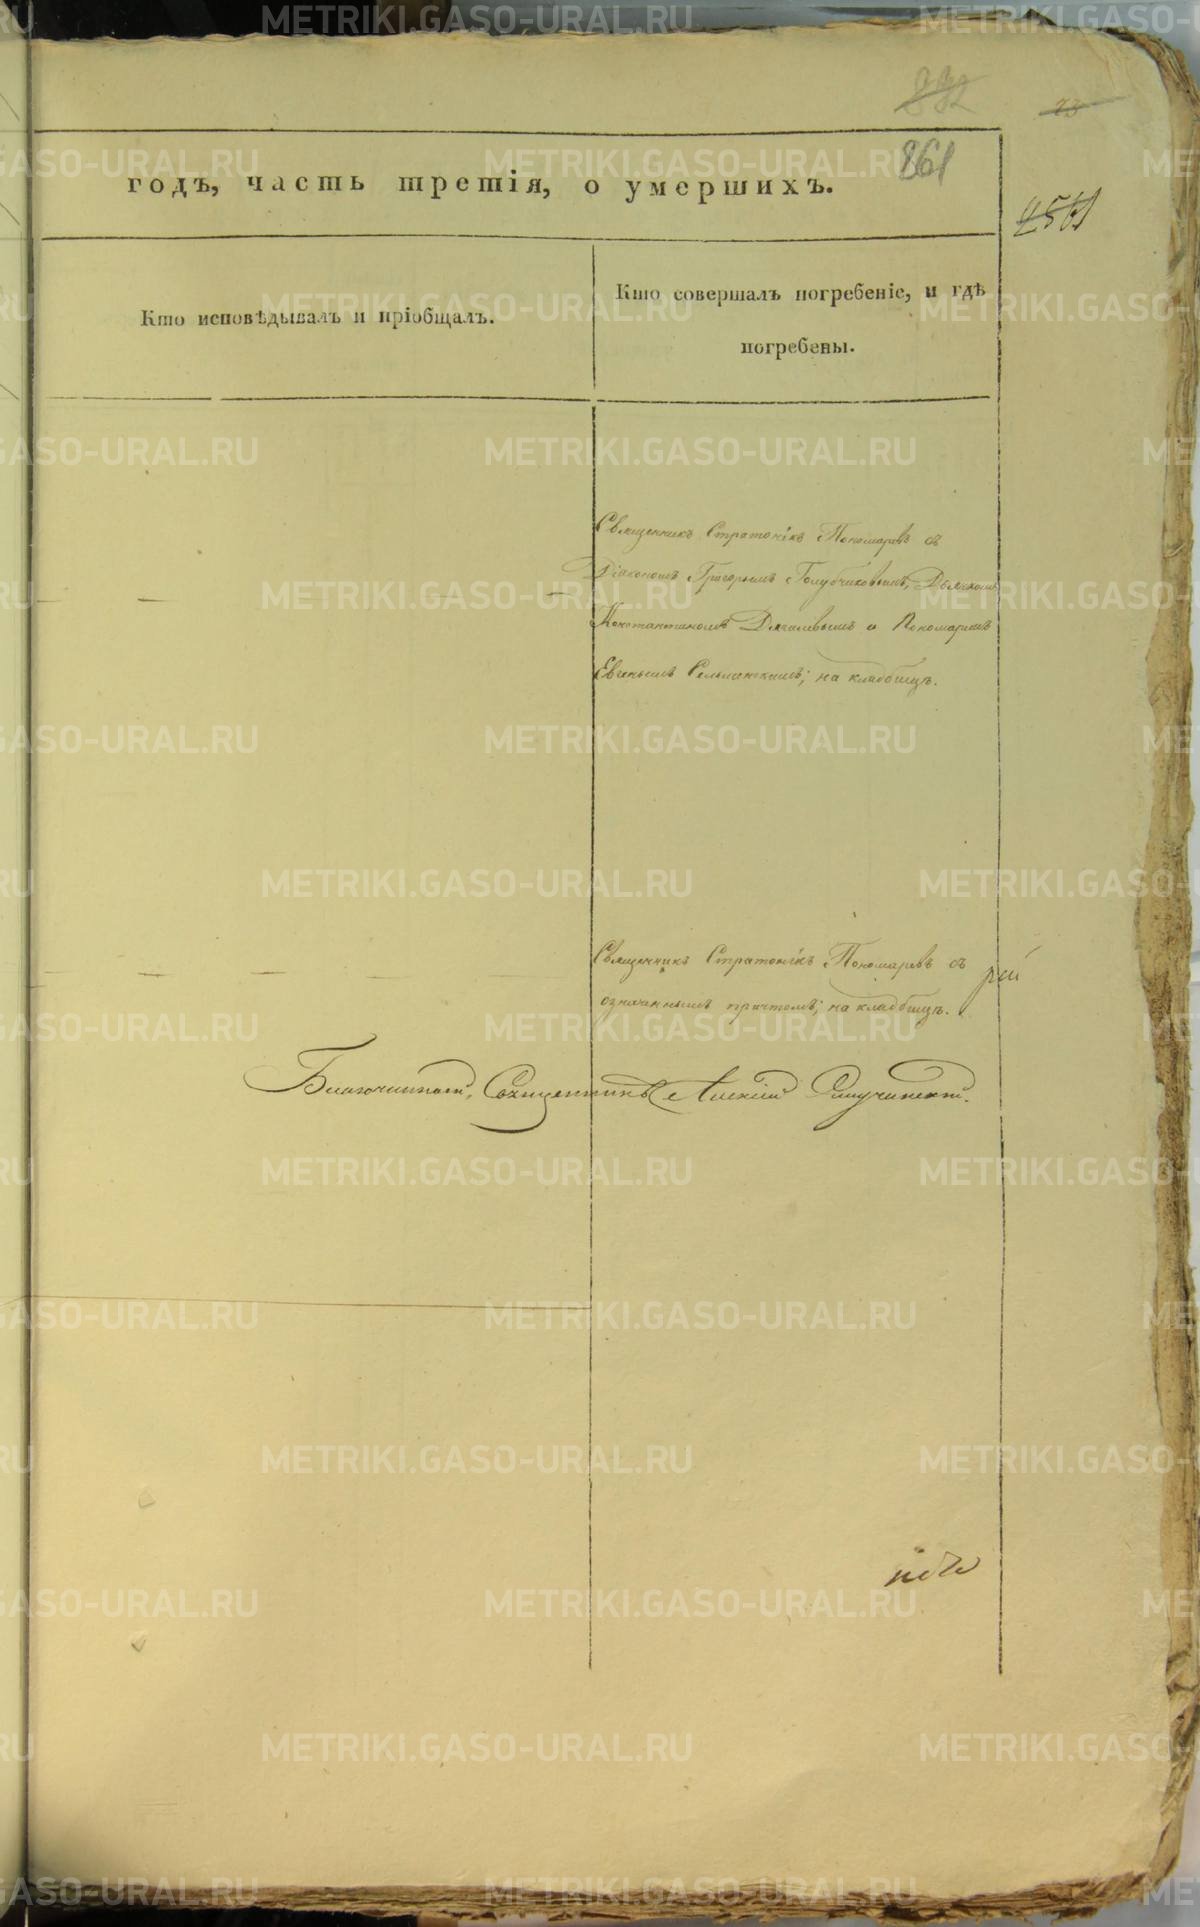 892
23
861
годъ, часть третія, о умершихъ.
Кто исповѣдывалъ и пріобщалъ.
Кто совершалъ погребеніе, и гдѣ
погребены.
Священникъ Стратоникъ Пономаревъ съ
Діакономъ Григорьемъ Голубчиковымъ, Дьячкомъ
Константиномъ и Пономаремъ
Евгеньемъ на кладбищѣ.
Священникъ Стратоникъ Пономаревъ съ
означеннымъ причтомъ; на кладбищѣ.
рей
Благочинный, Священникъ Алексій
METRIKI.GASO-URAL.RU